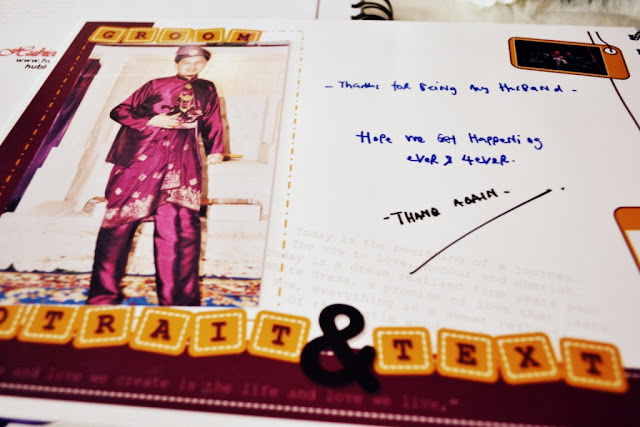 GROOM
www.h
hubi
- Thanks for Being my HusBanD -
Hope we Get Happening
ever & 4ever.
- THANQ AGAIN -
Today is the beginning of a journey
The vow to love, honour and cherish
Today is a dream realized from years past
dress, a promise of love that
OTRAIT & TEXT
and love we create is the life and love we live,"